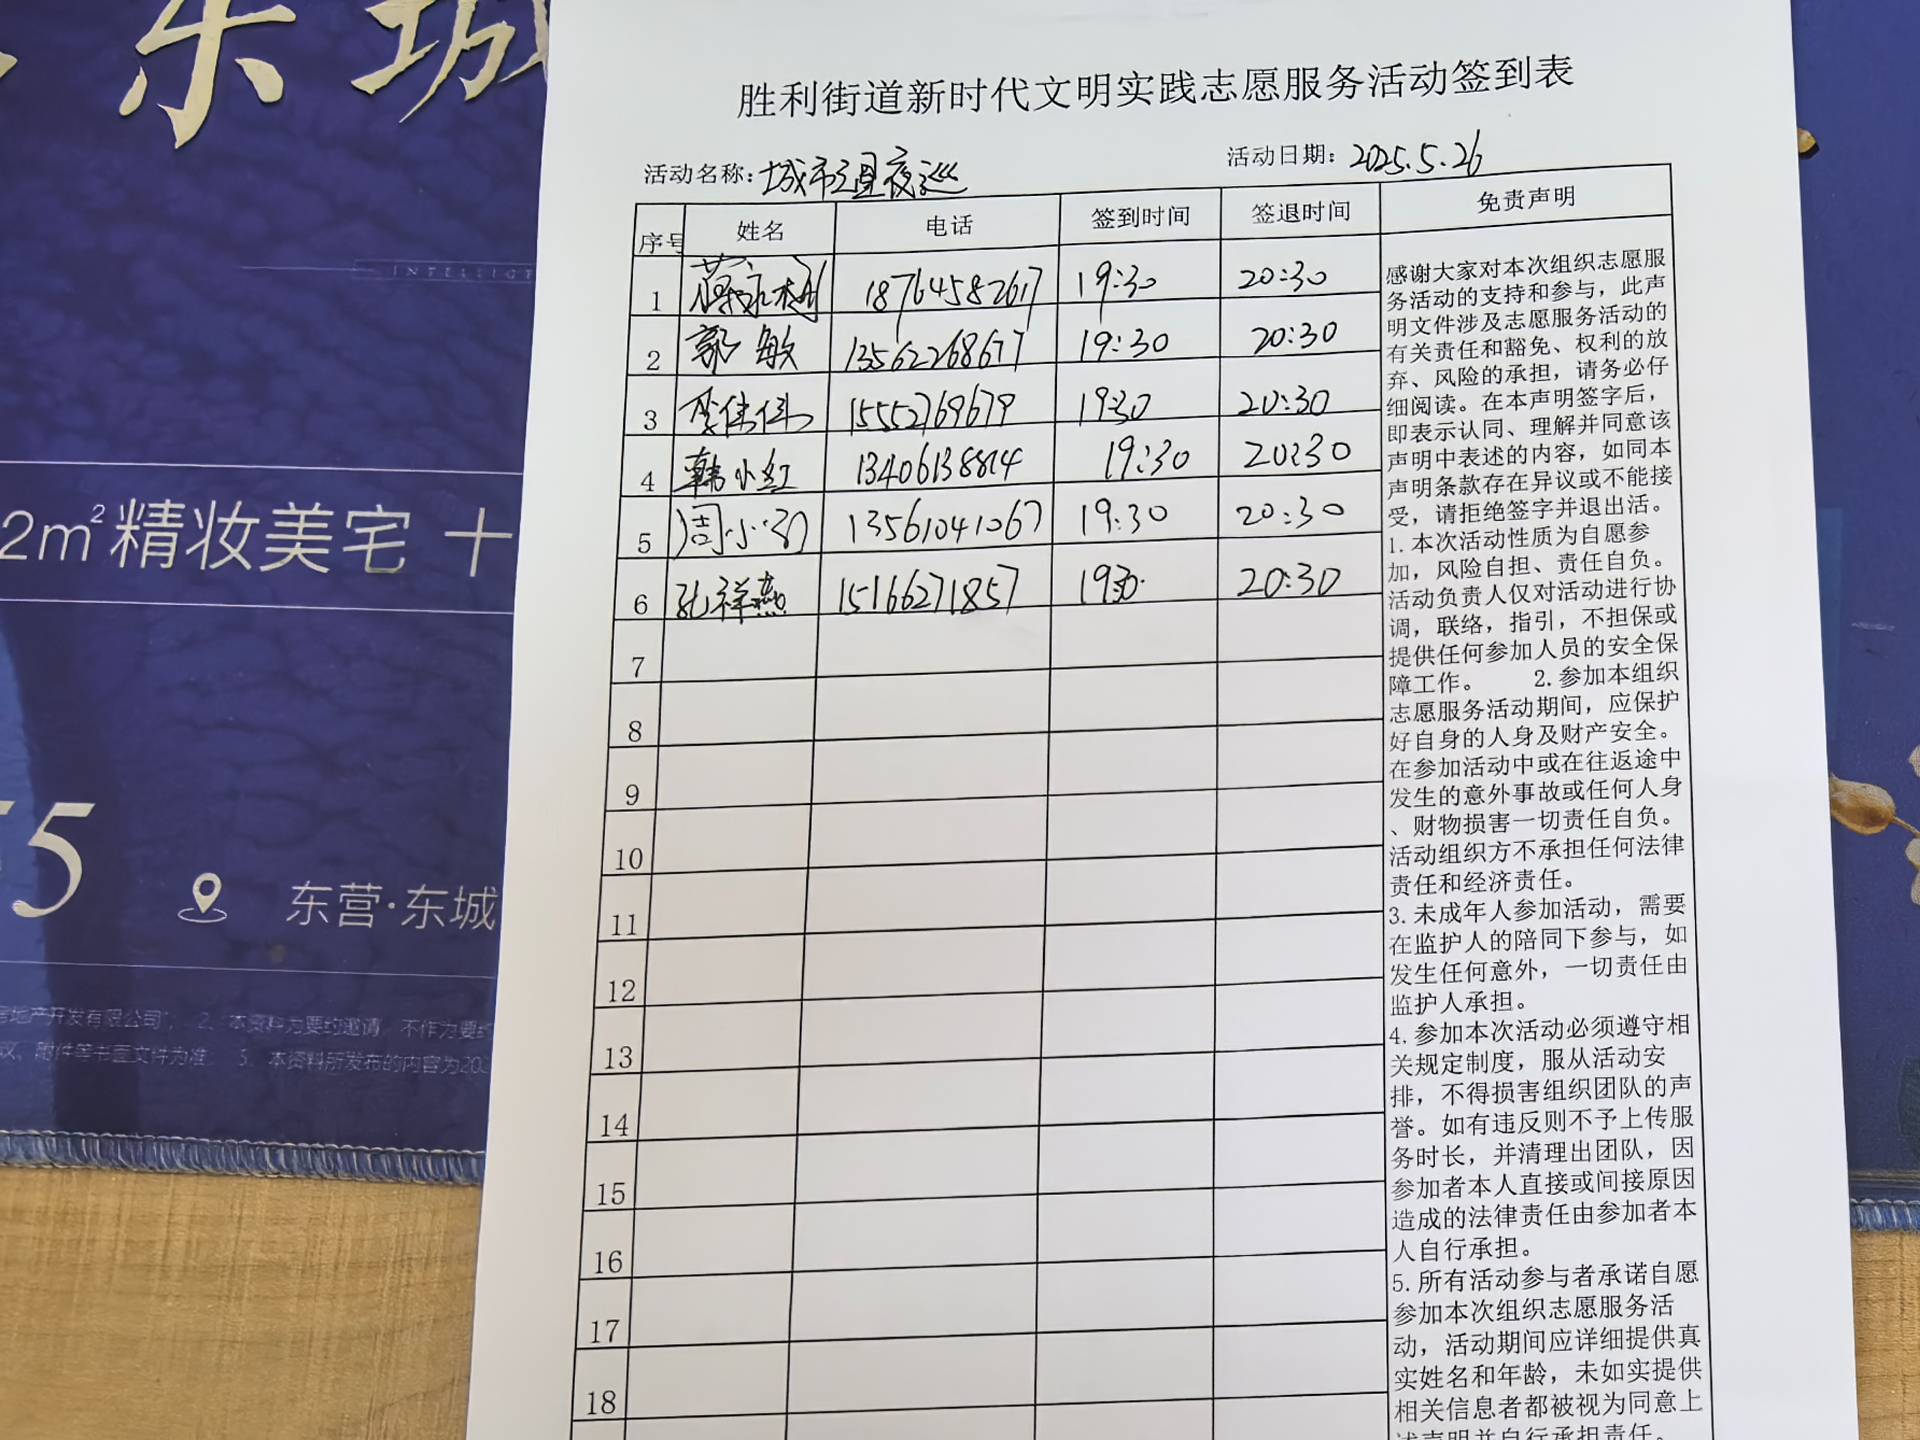 东城
INTELLIGE
2m²精妆美宅 十
5
东营·东城
房地产开发有限公司; 2、本资料为要约邀请,不作为要约
议、附件等书面文件为准 3、本资料所发布的内容为202
胜利街道新时代文明实践志愿服务活动签到表
活动名称:城市夜巡 活动日期:2025.5.26
序号 姓名 电话 签到时间 签退时间 免责声明
1 18764582617 19:30 20:30
2 郭敏 13562268677 19:30 20:30
3 李伟伟 15552769679 19:30 20:30
4 韩小红 13406138814 19:30 20:30
5 周小 13561041067 19:30 20:30
6 孔祥燕 15166271857 19:30 20:30
7
8
9
10
11
12
13
14
15
16
17
18
感谢大家对本次组织志愿服
务活动的支持和参与,此声
明文件涉及志愿服务活动的
有关责任和豁免、权利的放
弃、风险的承担,请务必仔
细阅读。在本声明签字后,
即表示认同、理解并同意该
声明中表述的内容,如同本
声明条款存在异议或不能接
受,请拒绝签字并退出活。
1.本次活动性质为自愿参
加,风险自担、责任自负。
活动负责人仅对活动进行协
调,联络,指引,不担保或
提供任何参加人员的安全保
障工作。 2.参加本组织
志愿服务活动期间,应保护
好自身的人身及财产安全。
在参加活动中或在往返途中
发生的意外事故或任何人身
、财物损害一切责任自负。
活动组织方不承担任何法律
责任和经济责任。
3.未成年人参加活动,需要
在监护人的陪同下参与,如
发生任何意外,一切责任由
监护人承担。
4.参加本次活动必须遵守相
关规定制度,服从活动安
排,不得损害组织团队的声
誉。如有违反则不予上传服
务时长,并清理出团队,因
参加者本人直接或间接原因
造成的法律责任由参加者本
人自行承担。
5.所有活动参与者承诺自愿
参加本次组织志愿服务活
动,活动期间应详细提供真
实姓名和年龄,未如实提供
相关信息者都被视为同意上
述声明并自行承担责任。